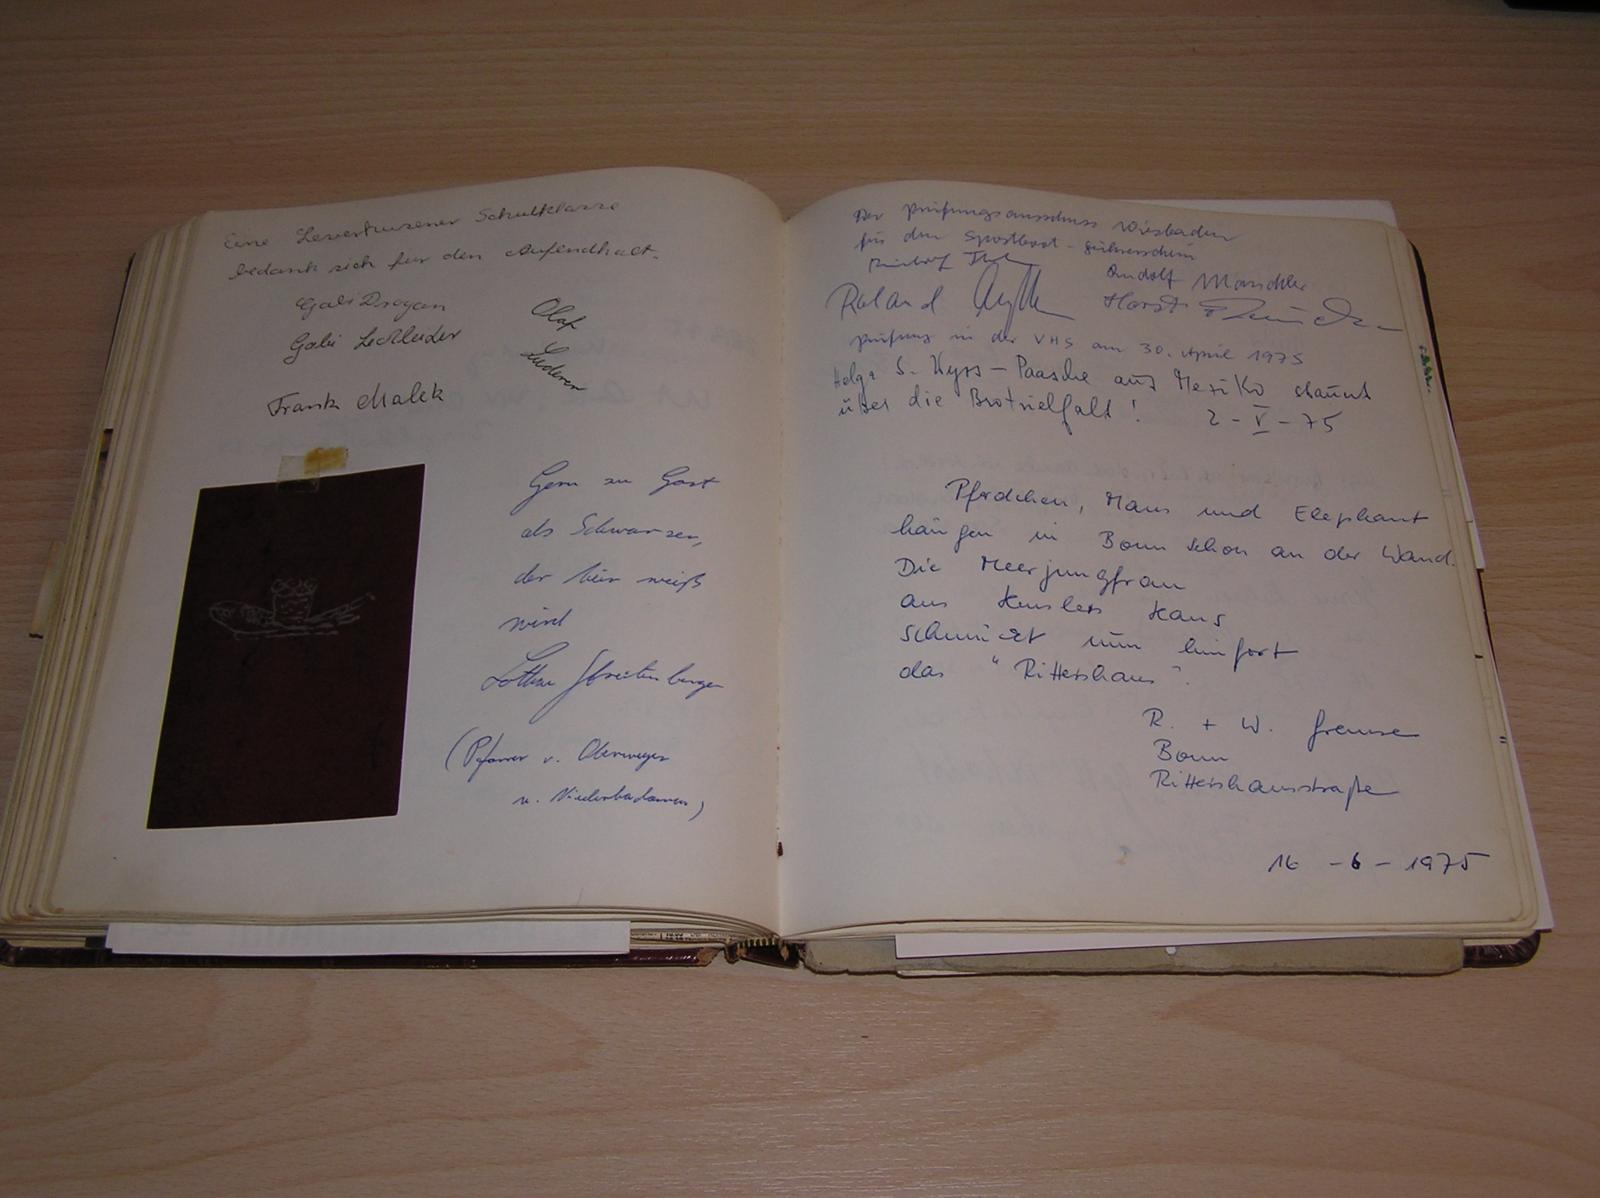 Eine Leverkusener Schulklasse
bedank sich für den Aufendhalt.
Gabi Drogan
Olaf
Gabi
Luderer
Frank Malek
Gern zu Gast
als Schwarzer,
der hier weiß
wird
Lothar
(Pfarrer v. Oberweyer
u. Niederhadamar)
Der Prüfungsausschuss Wiesbaden
für den Sportboot-führerschein
Rudolf
Roland
Horst
Prüfung in der VHS am 30. April 1975
Helga S. Wyss-Paasche aus Mexiko staunt
über die Brotvielfalt! 2-V-75
Pferdchen, Maus und Elephant
hängen in Bonn schon an der Wand.
Die Meerjungfrau
aus Hause
schmückt nun hinfort
das "Rittershaus".
R. + W.
Bonn
Rittershausstraße
16-6-1975